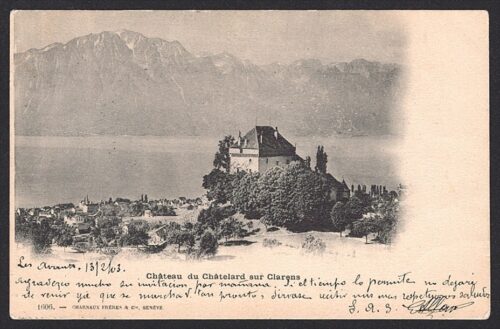 Château du Châtelard sur Clarens
Les Avants 13/2/03.
Agradezco mucho su invitacion por mañana. Si el tiempo lo permite no dejaré
de venir ya que se marchan tan pronto; dirvase recibir mis mas respetuosos saludos
1606. — CHARNAUX FRÈRES & Cie, GENÈVE.
S. A. S.